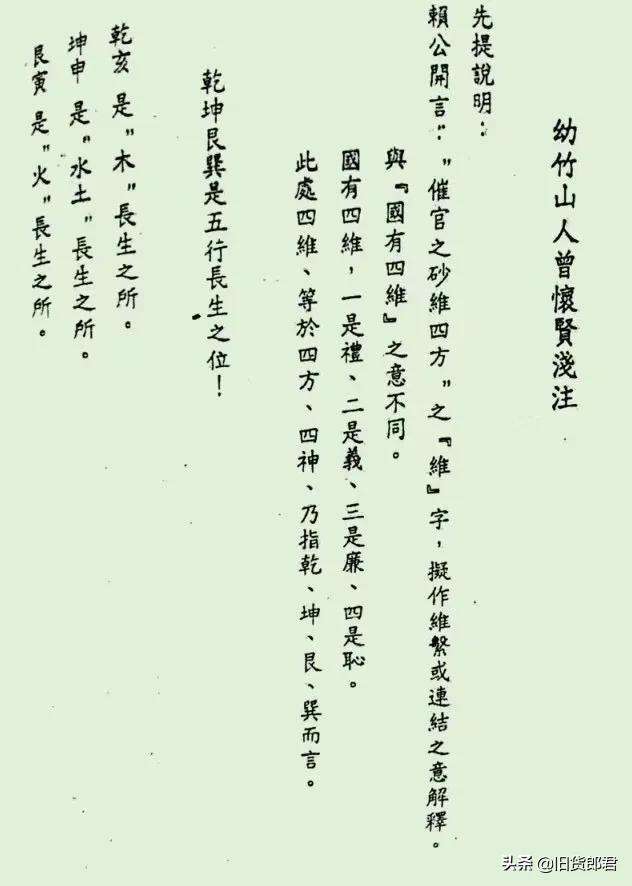 幼竹山人曾懷賢淺注
先提說明：
賴公開言：“催官之砂維四方”之『維』字，擬作維繫或連結之意解釋。
與『國有四維』之意不同。
國有四維，一是禮、二是義、三是廉、四是恥。
此處四維、等於四方、四神、乃指乾、坤、艮、巽而言。
乾坤艮巽是五行長生之位！
乾亥是“木”長生之所。
坤申是“水土”長生之所。
艮寅是“火”長生之所。
头条 @旧货郎君